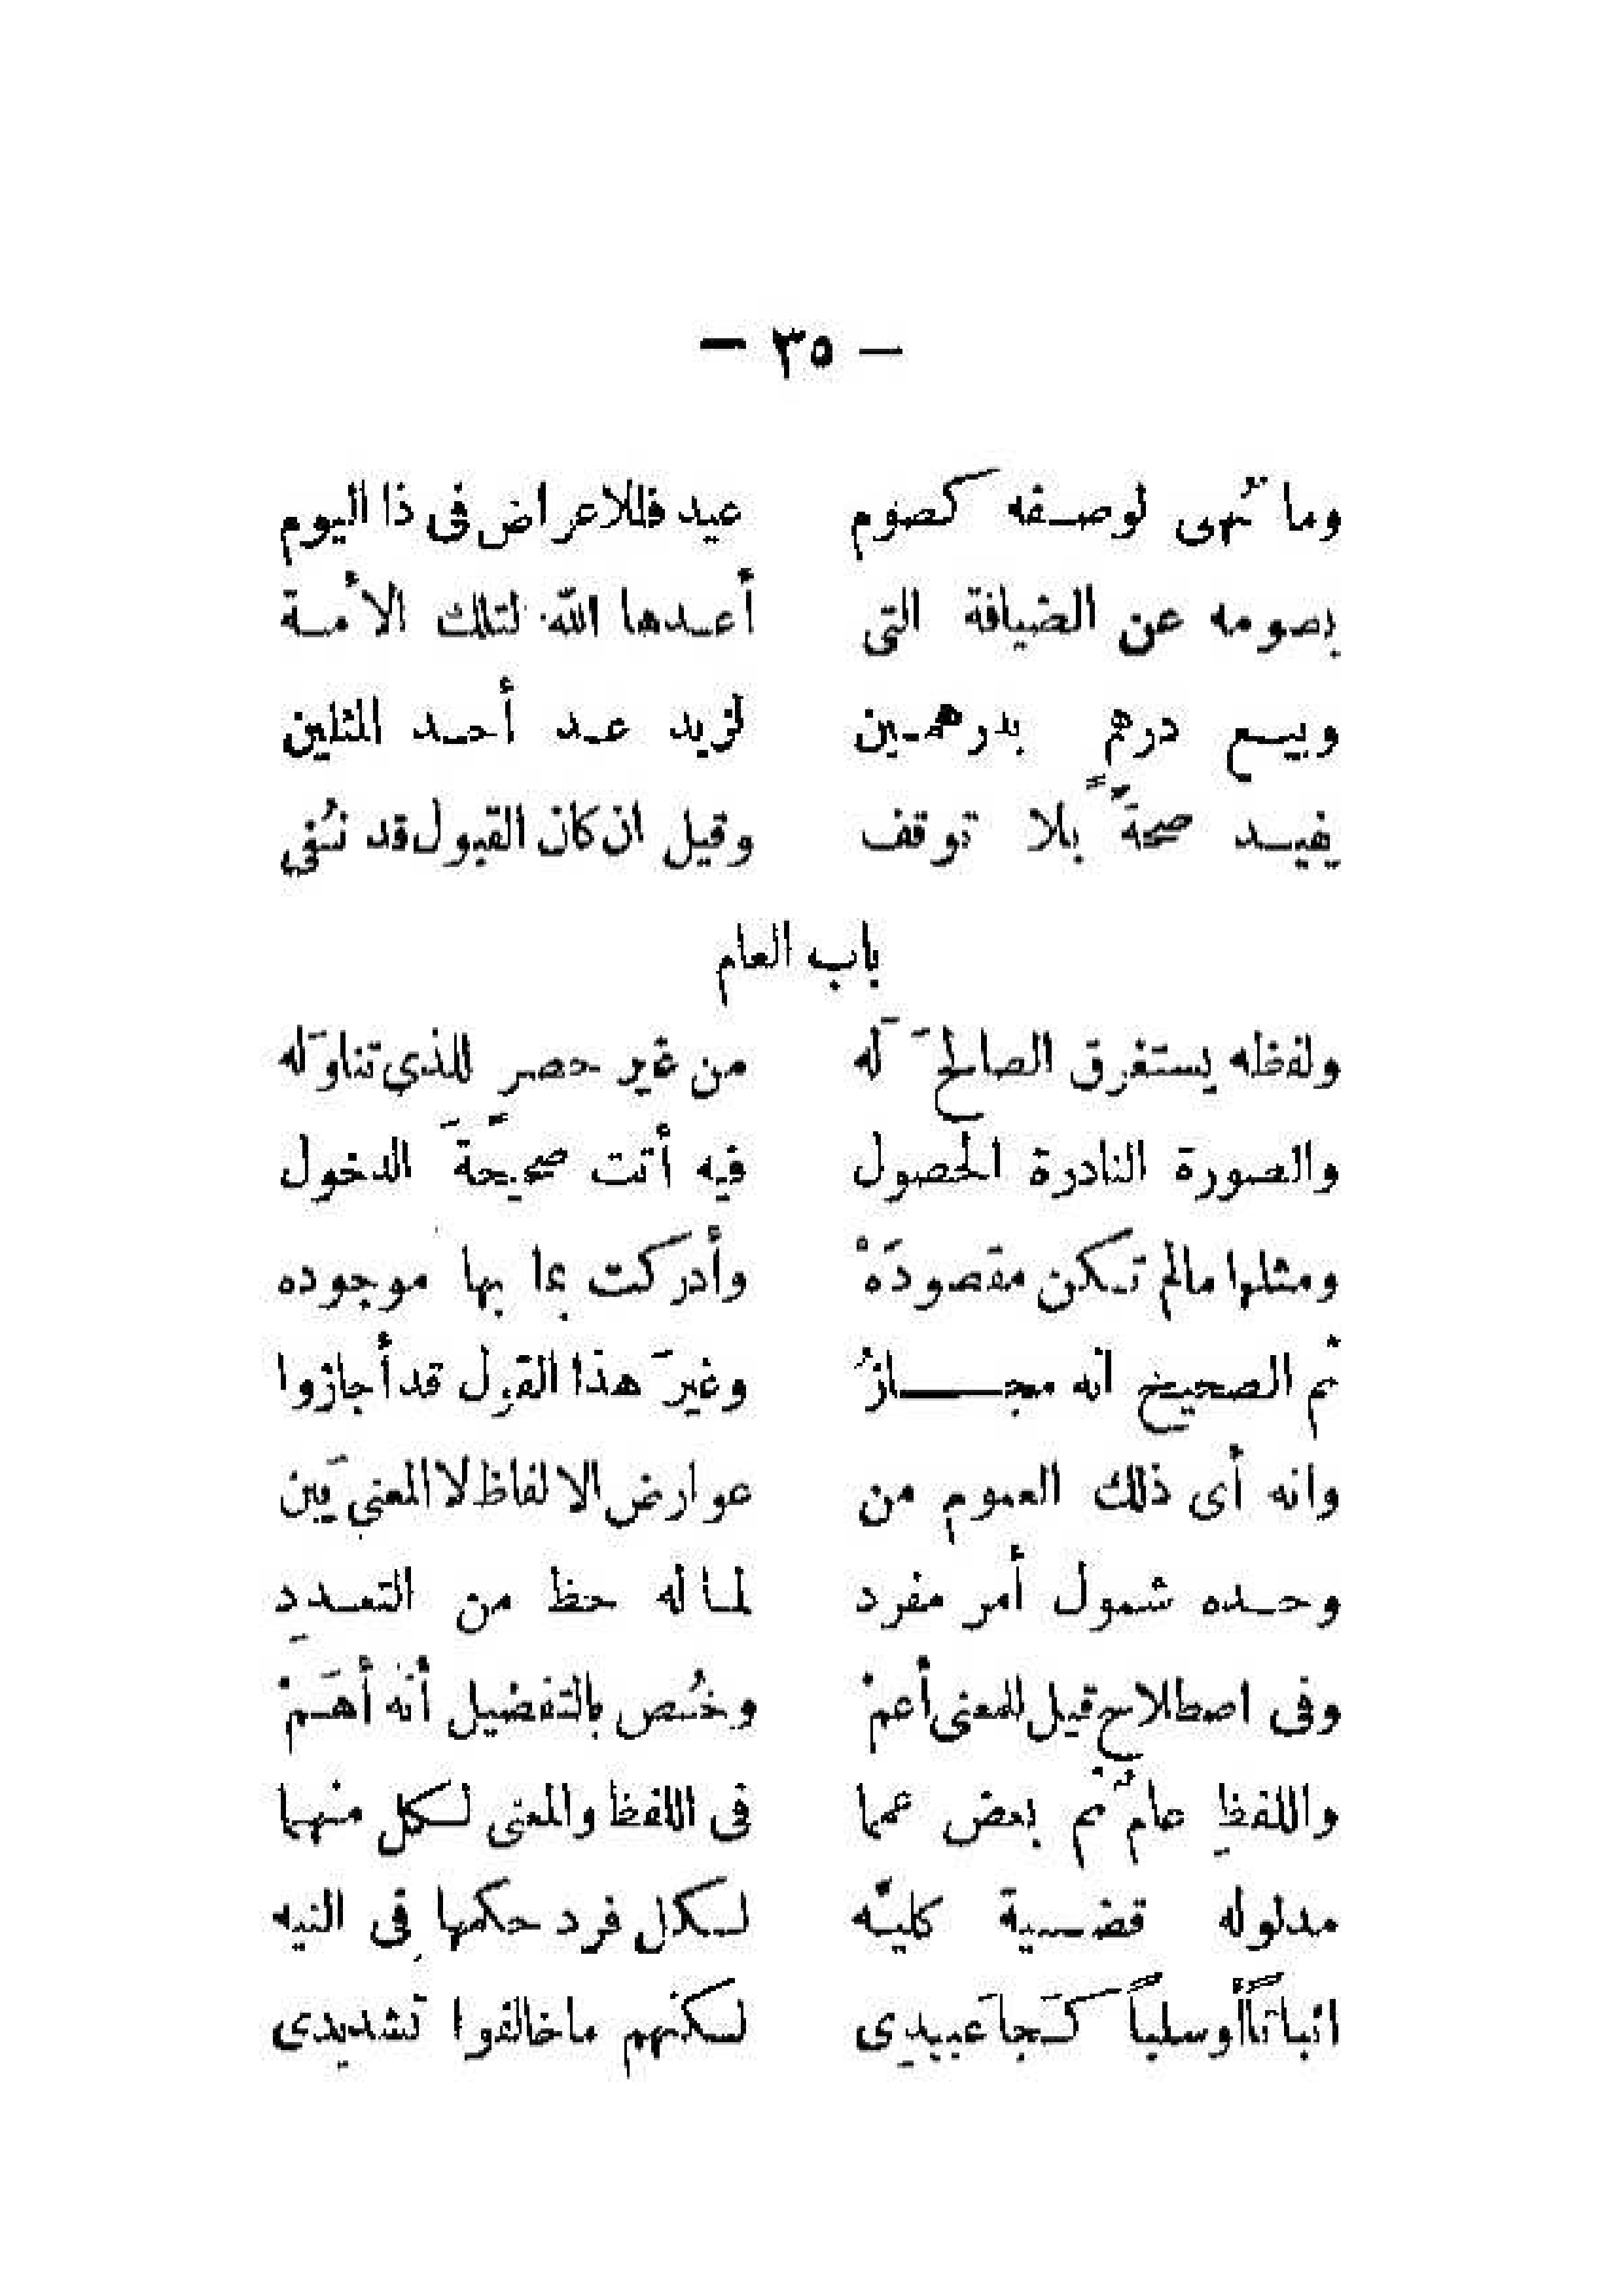 — ٣٥ —
وما نُهى لوصفه كصوم عيد فللاعراض فى ذا اليوم
بصومه عن الضيافة التى أعدها الله لتلك الأمة
وبيع درهم بدرهمين لزيد عد أحد المثلين
يفيد صحةً بلا توقف وقيل ان كان القبول قد نُفي
باب العام
ولفظه يستغرق الصالحَ لَه من غير حصرٍ للذي تناوَله
والصورة النادرة الحصول فيه أتت صحيحةَ الدخول
ومثلها مالم تكن مقصودَهْ وأدركت بما بها موجوده
ثم الصحيح انه مجازُ وغيرَ هذا القول قد أجازوا
وانه أى ذلك العموم من عوارض الالفاظ لا المعني يَبِن
وحده شمول أمر مفرد لما له حظ من التعددِ
وفى اصطلاح قيل للمعنى أعمْ وخُص بالتفضيل أنه أهَمْ
واللفظِ عام ثُم بعض عمما فى اللفظ والمعنى لكل منهما
مدلوله قضية كليّه لكل فرد حكمها فى النيه
اثباتاً أو سلباً كَجاَ عبيدِى لكنهم ما خالفوا تشديدى